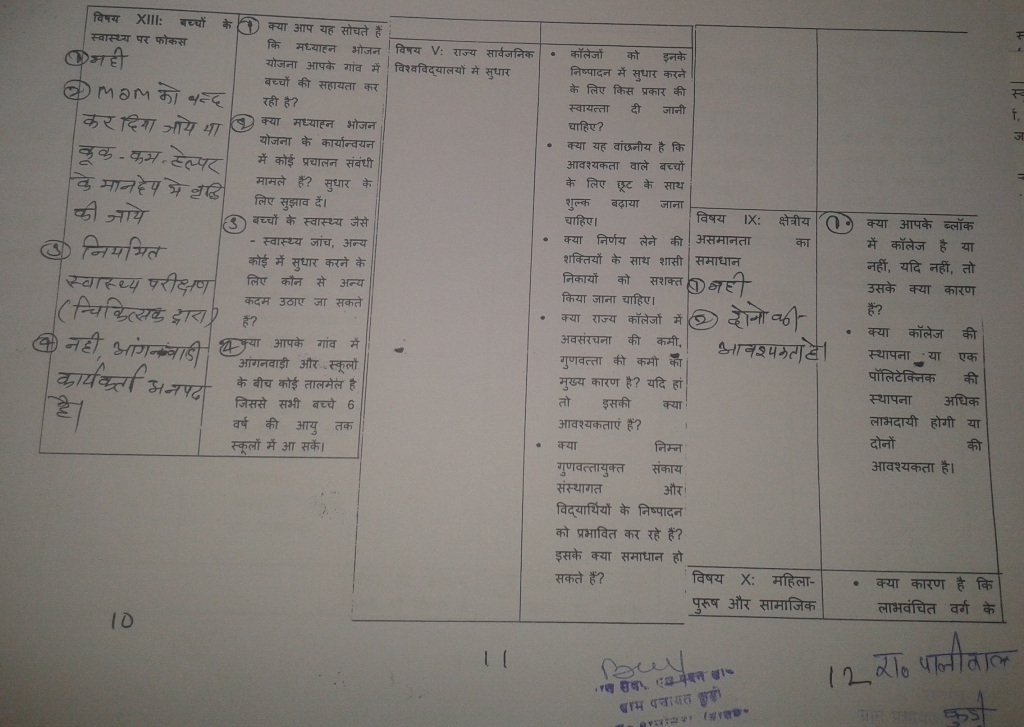 विषय XIII: बच्चों के
स्वास्थ्य पर फोकस
① नही
② MDM को बन्द
कर दिया जाये या
कूक-कम-हेल्पर
के मानदेय मे वृद्धि
की जाये
③ नियमित
स्वास्थ्य परीक्षण
(चिकित्सक द्वारा)
④ नही, आंगनवाडी
कार्यकर्ता अनपढ
है।
① क्या आप यह सोचते हैं
कि मध्याहन भोजन
योजना आपके गांव में
बच्चों की सहायता कर
रही है?
② क्या मध्याहन भोजन
योजना के कार्यान्वयन
में कोई प्रचालन संबंधी
मामले हैं? सुधार के
लिए सुझाव दें।
③ बच्चों के स्वास्थ्य जैसे
- स्वास्थ्य जांच, अन्य
कोई में सुधार करने के
लिए कौन से अन्य
कदम उठाए जा सकते
हैं?
④ क्या आपके गांव में
आंगनवाडी और स्कूलों
के बीच कोई तालमेल है
जिससे सभी बच्चे 6
वर्ष की आयु तक
स्कूलों में आ सकें।
10
विषय V: राज्य सार्वजनिक
विश्वविद्यालयों में सुधार
• कॉलेजों को इनके
निष्पादन में सुधार करने
के लिए किस प्रकार की
स्वायत्ता दी जानी
चाहिए?
• क्या यह वांछनीय है कि
आवश्यकता वाले बच्चों
के लिए छूट के साथ
शुल्क बढ़ाया जाना
चाहिए।
• क्या निर्णय लेने की
शक्तियों के साथ शासी
निकायों को सशक्त
किया जाना चाहिए।
• क्या राज्य कॉलेजों में
अवसंरचना की कमी,
गुणवत्ता की कमी का
मुख्य कारण है? यदि हां
तो इसकी क्या
आवश्यकताएं हैं?
• क्या निम्न
गुणवत्तायुक्त संकाय
संस्थागत और
विद्यार्थियों के निष्पादन
को प्रभावित कर रहे हैं?
इसके क्या समाधान हो
सकते हैं?
11
विषय IX: क्षेत्रीय
असमानता का
समाधान
① नही
② दोनो की
आवश्यकता है।
①• क्या आपके ब्लॉक
में कॉलेज है या
नहीं, यदि नहीं, तो
उसके क्या कारण
हैं?
• क्या कॉलेज की
स्थापना या एक
पॉलिटेक्निक की
स्थापना अधिक
लाभदायी होगी या
दोनों की
आवश्यकता है।
विषय X: महिला-
पुरूष और सामाजिक
• क्या कारण है कि
लाभवंचित वर्ग के
12 रा० पालीवाल
ग्राम पंचायत